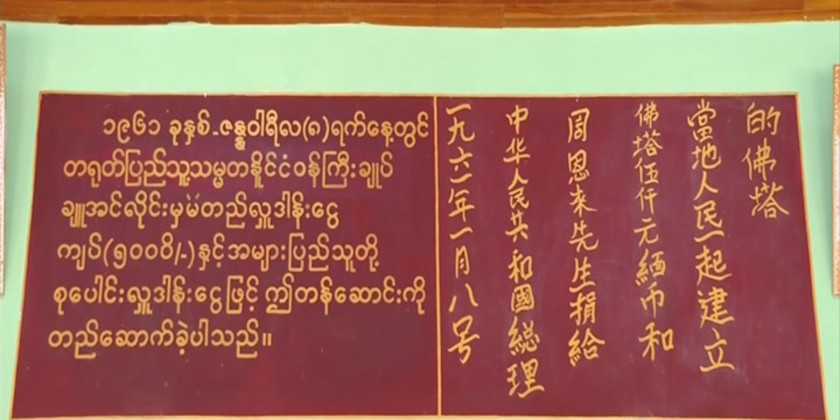 ၁၉၆၁ ခုနှစ်-ဇန္နဝါရီလ(၈)ရက်နေ့တွင်
တရုတ်ပြည်သူ့သမ္မတနိုင်ငံဝန်ကြီးချုပ်
ချူအင်လိုင်းမှမတည်လှူဒါန်းငွေ
ကျပ်(၅၀၀၀ိ/-)နှင့်အများပြည်သူတို့
စုပေါင်းလှူဒါန်းငွေဖြင့် ဤတန်ဆောင်းကို
တည်ဆောက်ခဲ့ပါသည်။
一九六一年一月八号
中华人民共和國総理
周恩來先生捐給
佛塔伍仟元緬币和
當地人民一起建立
的佛塔